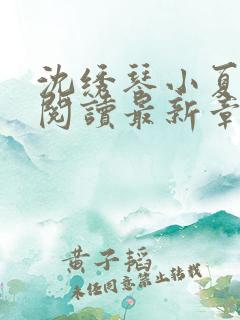 沈绣琴小夏
閱讀最新章
黄子韬
未经同意禁止转载